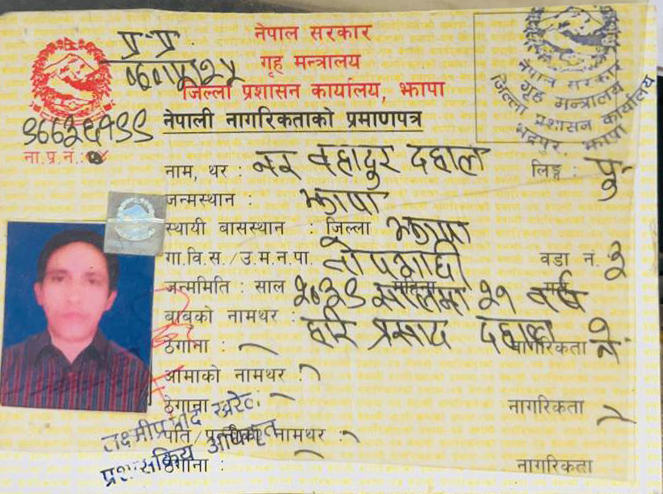 प्र. प्र.
नेपाल सरकार
गृह मन्त्रालय
जिल्ला प्रशासन कार्यालय, झापा
नेपाली नागरिकताको प्रमाणपत्र
ना.प्र.नं.:
नेपाल सरकार
गृह मन्त्रालय
जिल्ला प्रशासन कार्यालय
भद्रपुर, झापा
नाम, थर : नर बहादुर दहाल लिङ्ग : पु
जन्मस्थान : झापा
स्थायी बासस्थान : जिल्ला झापा
गा.वि.स./उ.म.न.पा. तोपगाछी वडा नं. ३
जन्ममिति : साल २०३९ सालमा २१ वर्ष
बाबुको नामथर : हरि प्रसाद दहाल
ठेगाना : नागरिकता ने
आमाको नामथर :
ठेगाना : नागरिकता
पति/पत्नीको नामथर :
ठेगाना : नागरिकता
लक्ष्मीप्रसाद खरेल
प्रशासकिय अधिकृत